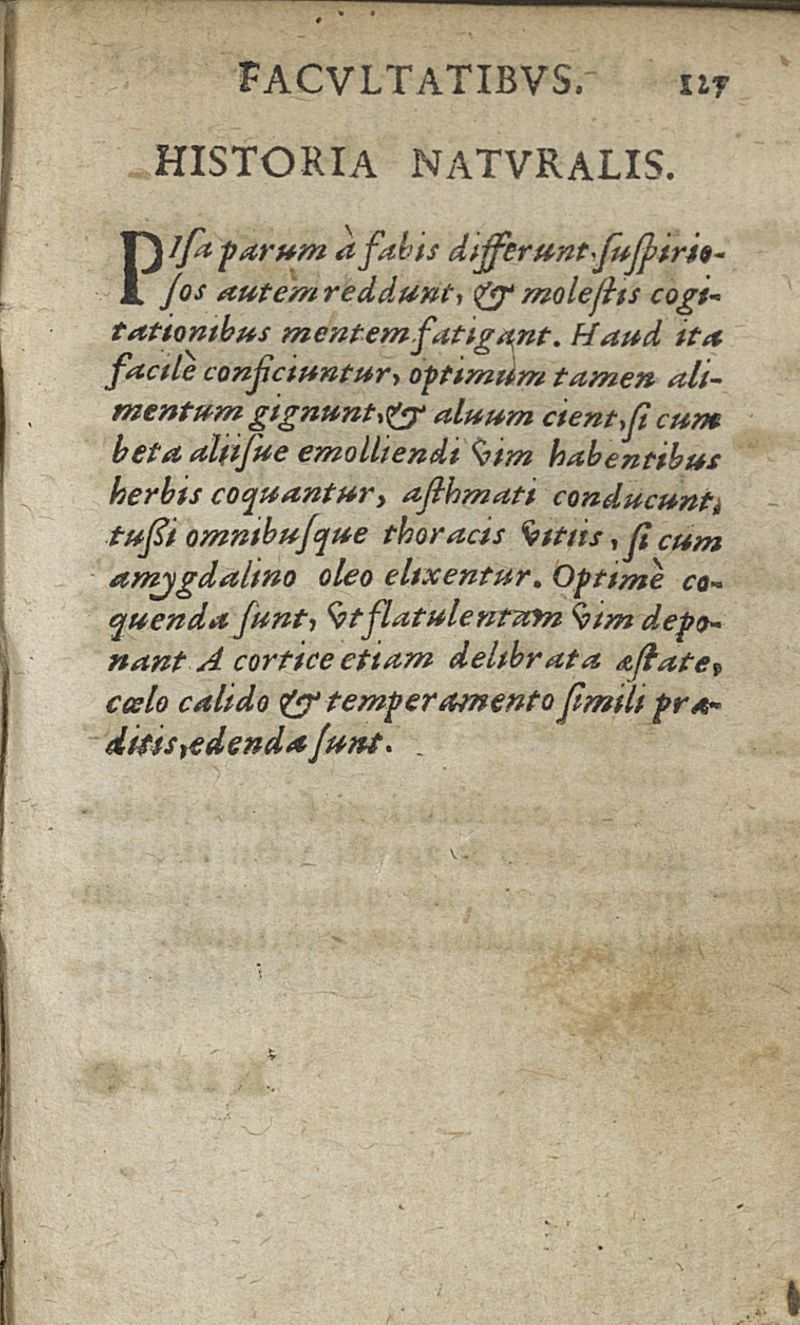 FACVLTATIBVS. 127
HISTORIA NATVRALIS.
PIſa parum à fabis differunt, ſuſpirio-
ſos autem reddunt, & moleſtis cogi-
tationibus mentem fatigant. Haud ita
facilè conficiuntur, optimum tamen ali-
mentum gignunt, & aluum cient, ſi cum
beta aliiſue emolliendi vim habentibus
herbis coquantur, aſthmati conducunt,
tuſſi omnibuſque thoracis vitiis, ſi cum
amygdalino oleo elixentur. Optimè co-
quenda ſunt, vt flatulentam vim depo-
nant A cortice etiam delibrata æſtate,
cœlo calido & temperamento ſimili præ-
ditis, edenda ſunt.